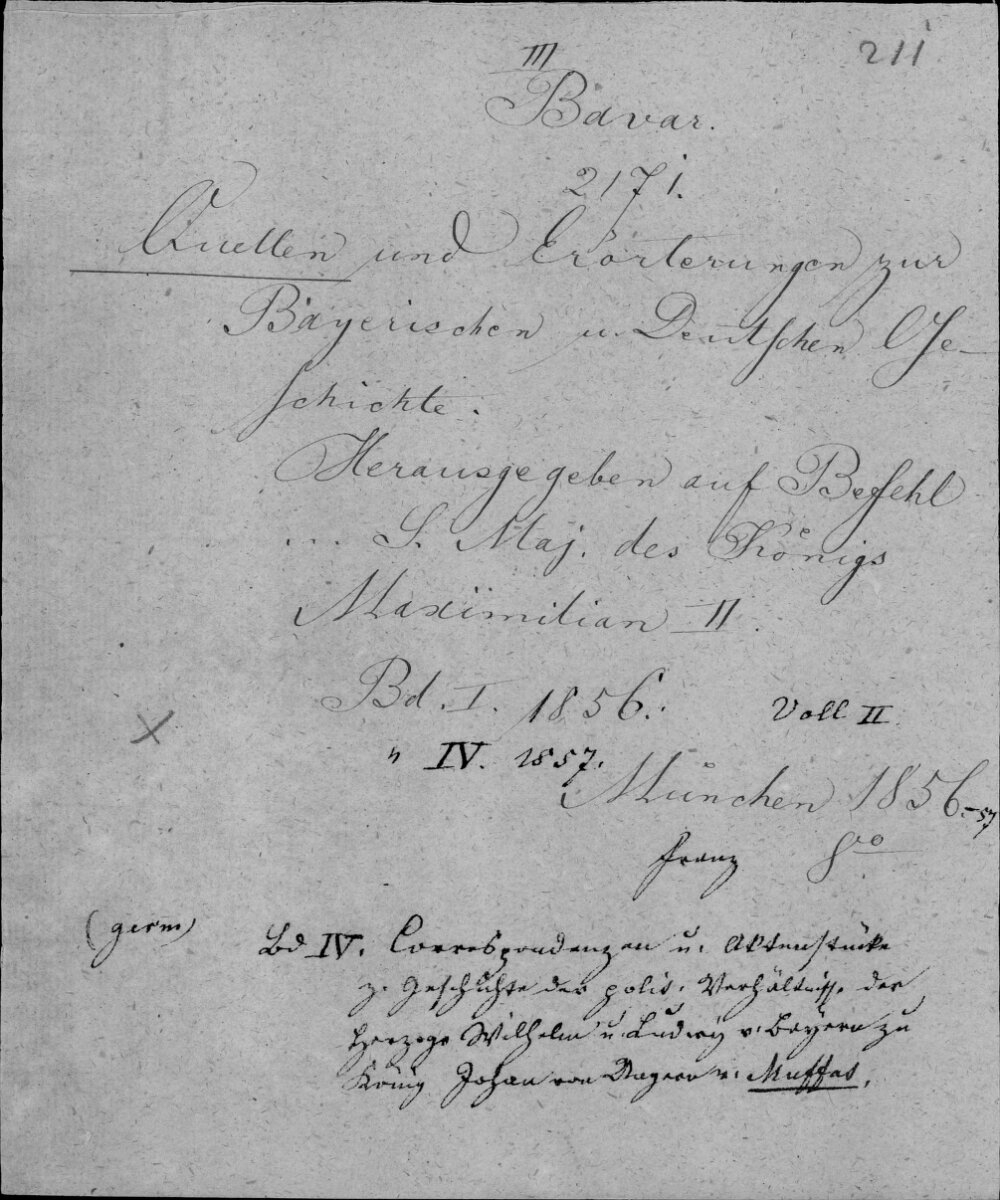 III
211
Bavar.
2171.
Quellen und Erörterungen zur
Bayerischen u. Deutschen Ge-
schichte.
Herausgegeben auf Befehl
... S. Maj. des Königs
Maximilian II.
Bd. I. 1856.
Voll II
" IV. 1857.
München 1856.-57
Franz 8o
(germ)
Bd IV. Correspondenzen u. Aktenstücke
z. Geschichte der polit. Verhältnisse der
Herzoge Wilhelm u. Ludwig v. Bayern zu
König Johan von Ungarn v. Muffat.